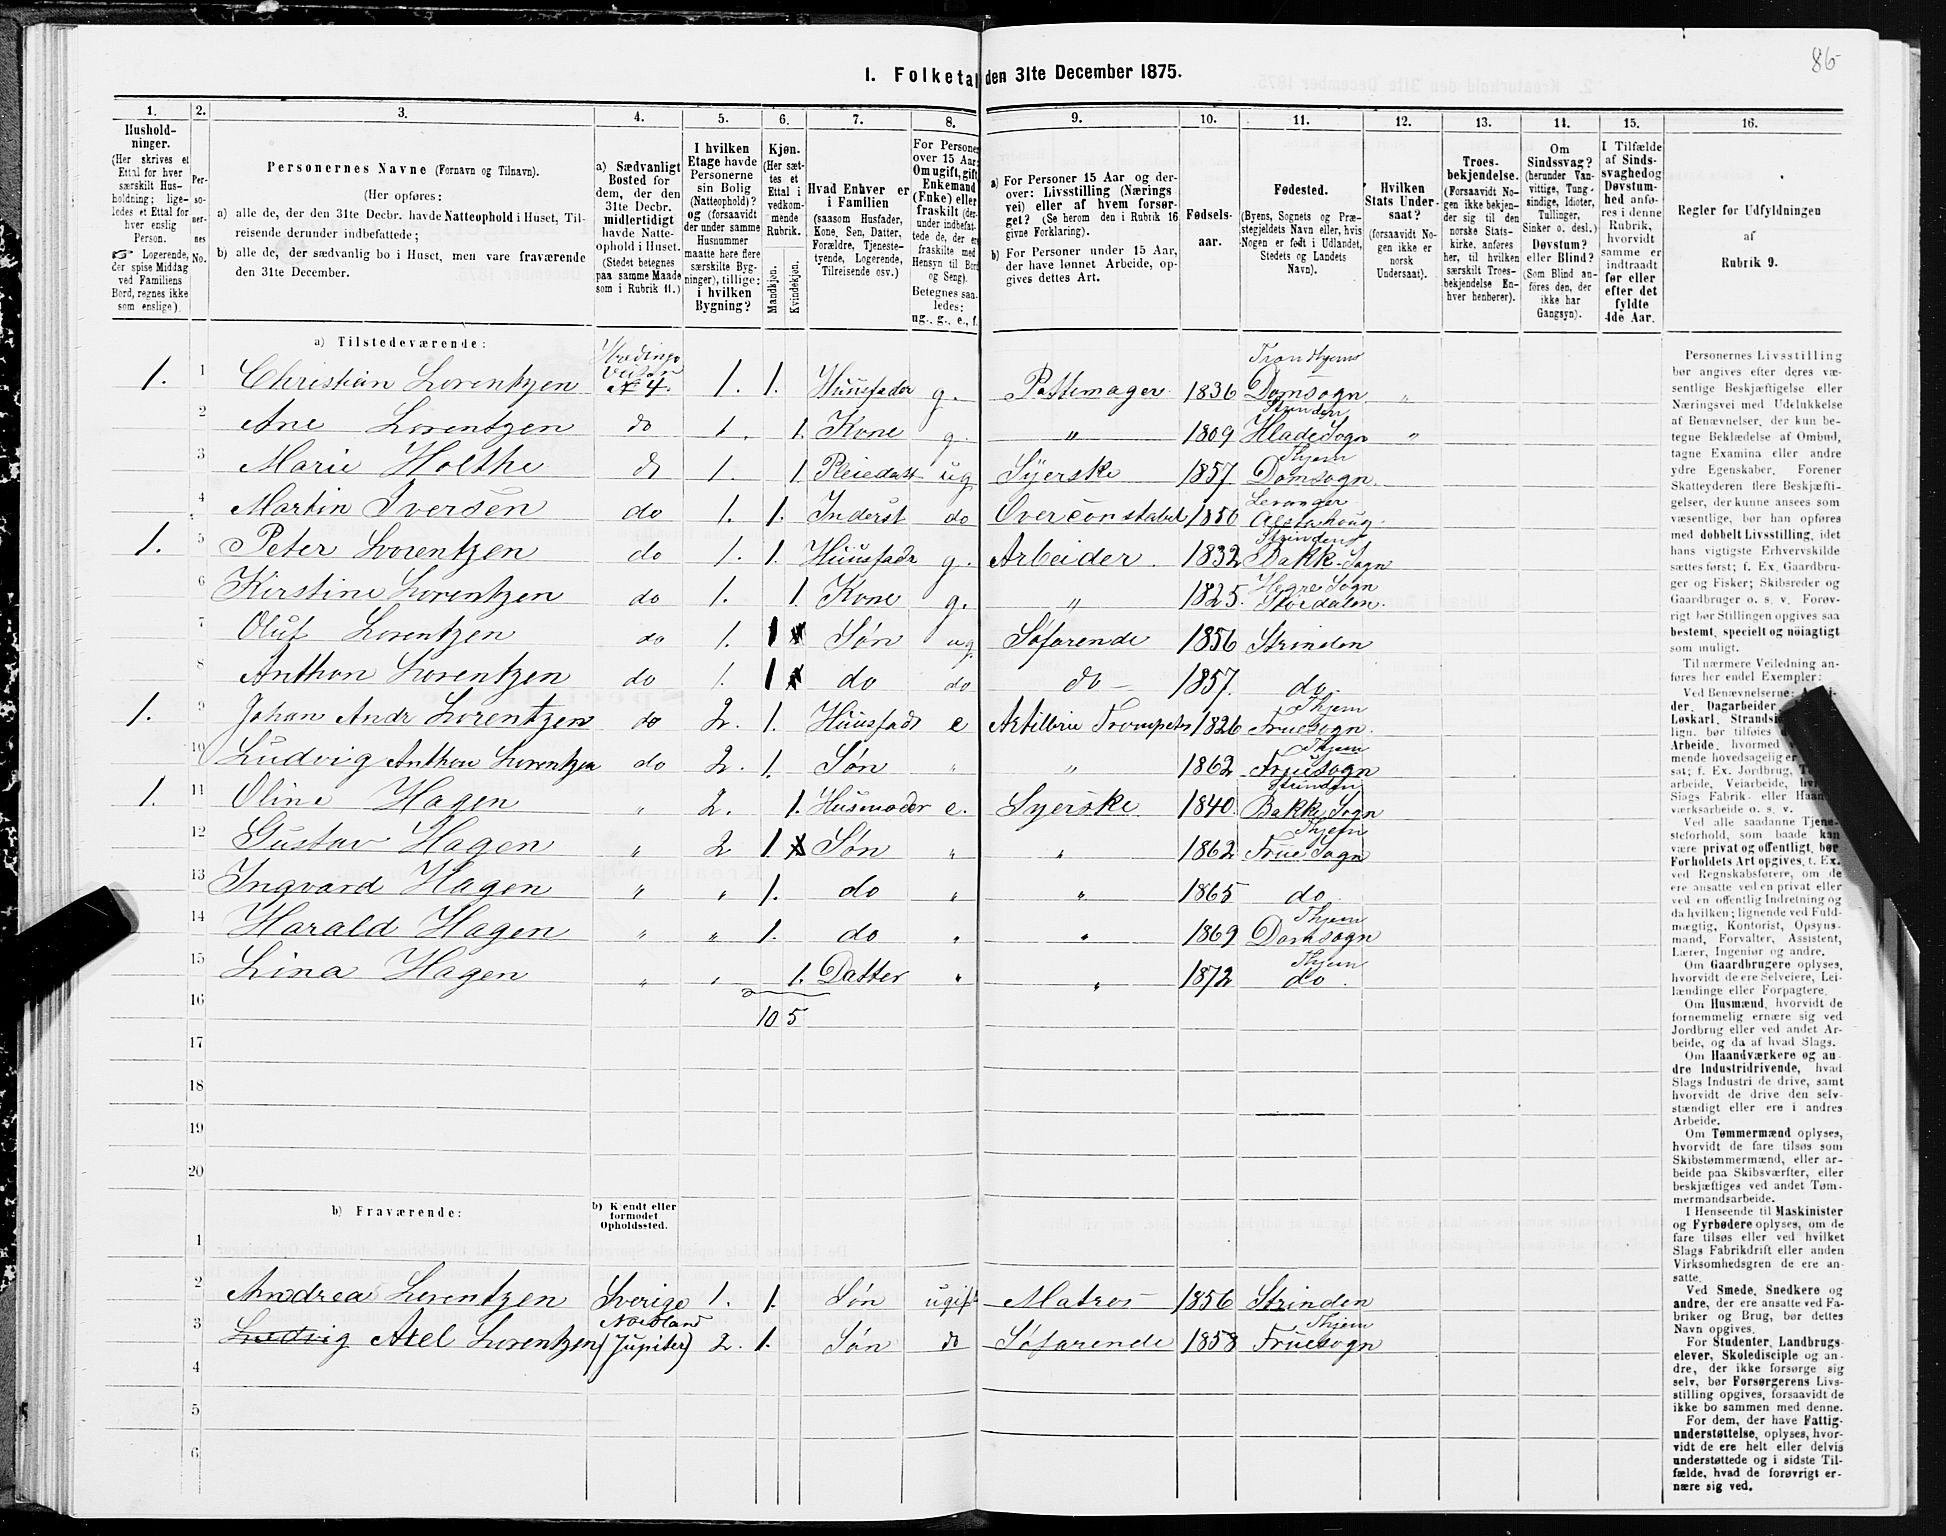 86
1. Folketal den 31te December 1875.
1. 2. 3. 4. 5. 6. 7. 8. 9. 10. 11. 12. 13. 14. 15. 16.
Hushold-
ninger.
(Her skrives et
Ettal for hver
særskilt Hus-
holdning; lige-
ledes et Ettal for
hver enslig
Person.
☞ Logerende,
der spise Middag
ved Familiens
Bord, regnes ikke
som enslige).
Per-
so-
ner-
nes
No.
Personernes Navne (Fornavn og Tilnavn).
(Her opføres:
a) alle de, der den 31te Decbr. havde Natteophold i Huset, Til-
reisende derunder indbefattede;
b) alle de, der sædvanlig bo i Huset, men vare fraværende
den 31te December.
a) Sædvanligt
Bosted for
dem, der den
31te Decbr.
midlertidigt
havde Natte-
ophold i Huset.
(Stedet betegnes
paa samme Maade
som i Rubrik 11.)
I hvilken
Etage havde
Personerne
sin Bolig
(Natteophold)?
og (forsaavidt
der under samme
Husnummer
maatte høre flere
særskilte Byg-
ninger), tillige:
i hvilken
Bygning?
Kjøn.
(Her sæt-
tes et
Ettal i
vedkom-
mende
Rubrik.
Mandkjøn.
Kvindekjøn.
Hvad Enhver er
i Familien
(saasom Husfader,
Kone, Søn, Datter,
Forældre, Tjeneste-
tyende, Logerende,
Tilreisende osv.)
For Personer
over 15 Aar:
Om ugift, gift,
Enkemand
(Enke) eller
fraskilt (der-
under indbefat-
tede de, der ere
fraskilte med
Hensyn til Bord
og Seng).
Betegnes saa-
ledes:
ug., g., e., f.
a) For Personer 15 Aar og der-
over: Livsstilling (Nærings-
vei) eller af hvem forsør-
get? (Se herom den i Rubrik 16
givne Forklaring).
b) For Personer under 15 Aar,
der have lønnet Arbeide, op-
gives dettes Art.
Fødsels-
aar.
Fødested.
(Byens, Sognets og Præ-
stegjeldets Navn eller, hvis
Nogen er født i Udlandet,
Stedets og Landets
Navn).
Hvilken
Stats Under-
saat?
(forsaavidt No-
gen ikke er
norsk
Undersaat).
Troes-
bekjendelse.
(Forsaavidt No-
gen ikke bekjen-
der sig til den
norske Stats-
kirke, anføres
her, til hvilken
særskilt Troes-
bekjendelse En-
hver henhører).
Om
Sindssvag?
(herunder Van-
vittige, Tung-
sindige, Idioter,
Tullinger,
Sinker o. desl.)
Døvstum?
eller Blind?
(Som Blind an-
føres den, der
ikke har
Gangsyn).
I Tilfælde
af Sinds-
svaghed og
Døvstum-
hed anfø-
res i denne
Rubrik,
hvorvidt
samme er
indtraadt
før eller
efter det
fyldte
4de Aar.
Regler for Udfyldningen
af
Rubrik 9.
a) Tilstedeværende:
1. 1 Christian Lorentzen № 4. 1. 1. Huusfader g. Pottemager 1836 Trondhjems Domsogn "
2 Ane Lorentzen do 1. 1. Kone g. " 1809 Strinden Hlade Sogn "
3 Marie Holthe do 1. 1. Pleiedatt ug Syerske 1857 Thjem Domsogn
4 Martin Iversen do 1. 1. Inderst do Overconstabel 1850 Levanger Alstahoug
1. 5 Peter Lorentzen do 1. 1. Huusfadr g. Arbeider 1832 Strinden Bakk-Sogn
6 Kirstine Lorentzen do 1. 1. Kone g. " 1825. Hegre Sogn Stördalen.
7 Oluf Lorentzen do 1. 1 Søn ug. Söfarende 1856 Strinden
8 Anthon Lorentzen do 1. 1 do do do 1857. do
1. 9 Johan Andr Lorentzen do 2. 1. Huusfadr e Artilleri Trompeter 1826 Thjem Fruesogn.
10 Ludvig Anthon Lorentzen do 2. 1. Søn " " 1862 Thjem Fruesogn
1. 11 Oline Hagen " 2. 1. Husmoder e. Syerske 1840. Strinden Bakke Sogn
12 Gustav Hagen " 2 1. Søn " " 1862 Thjem Frue Sogn
13 Ingvard Hagen " " 1. do " " 1865 do
14 Harald Hagen " " 1. do " " 1869 Thjem Domsogn
15 Lina Hagen " " 1. Datter " " 1872 Thjem do.
16 10 5
17
18
19
20
b) Fraværende:
b) Kjendt eller
formodet
Opholdssted.
1
2 Andrea Lorentzen Sverige 1. 1. Søn ugift Matros 1856 Strinden
3 Ludvig Axel Lorentzen Nordland (Jupiter) 2. 1. Søn do Söfarende 1858 Thjem Fruesogn
4
5
6
Personernes Livsstilling
bør angives efter deres væ-
sentlige Beskjæftigelse eller
Næringsvei med Udelukkelse
af Benævnelser, der kun be-
tegne Beklædelse af Ombud,
tagne Examina eller andre
ydre Egenskaber. Forener
Skatteyderen flere Beskjæfti-
gelser, der kunne ansees som
væsentlige, bør han opføres
med dobbelt Livsstilling, idet
hans vigtigste Erhvervskilde
sættes først; f. Ex. Gaardbru-
ger og Fisker; Skibsreder og
Gaardbruger o. s. v. Forøv-
rigt bør Stillingen opgives saa
bestemt, specielt og nøiagtigt
som muligt.
Til nærmere Veiledning an-
føres her endel Exempler:
Ved Benævnelserne:
der, Dagarbeider
Løskarl, Strandsi
lign. bør tilføies d
Arbeide, hvormed
mende hovedsagelig er
sat; f. Ex. Jordbrug,
arbeide, Veiarbeide, hv
Slags Fabrik- eller Haand-
værksarbeide o. s. v.
Ved alle saadanne Tjene-
steforhold, som baade kan
være privat og offentligt, bør
Forholdets Art opgives, t. Ex.
ved Regnskabsførere, om de
ere ansatte ved en privat eller
ved en offentlig Indretning og
da hvilken; lignende ved Fuld-
mægtig, Kontorist, Opsyns-
mand, Forvalter, Assistent,
Lærer, Ingeniør og andre.
Om Gaardbrugere oplyses,
hvorvidt de ere Selveiere, Lei-
lændinge eller Forpagtere.
Om Husmænd, hvorvidt de
fornemmelig ernære sig ved
Jordbrug eller ved andet Ar-
beide, og da af hvad Slags.
Om Haandværkere og an-
dre Industridrivende, hvad
Slags Industri de drive, samt
hvorvidt de drive den selv-
stændigt eller ere i andres
Arbeide.
Om Tømmermænd oplyses,
hvorvidt de fare tilsøs som
Skibstømmermænd, eller ar-
beide paa Skibsværfter, eller
beskjæftiges ved andet Tøm-
mermandsarbeide.
I Henseende til Maskinister
og Fyrbødere oplyses, om de
fare tilsøs eller ved hvilket
Slags Fabrikdrift eller anden
Virksomhedsgren de ere an-
satte.
Ved Smede, Snedkere og
andre, der ere ansatte ved Fa-
briker og Brug, bør dettes
Navn opgives.
For Studenter, Landbrugs-
elever, Skoledisciple og an-
dre, der ikke forsørge sig
selv, bør Forsørgerens Livs-
stilling opgives, forsaavidt de
ikke bo sammen med denne.
For dem, der have Fattig-
understøttelse, oplyses, hvor-
vidt de ere helt eller delvis
understøttede og i sidste Til-
fælde, hvad de forøvrigt er-
nære sig ved.